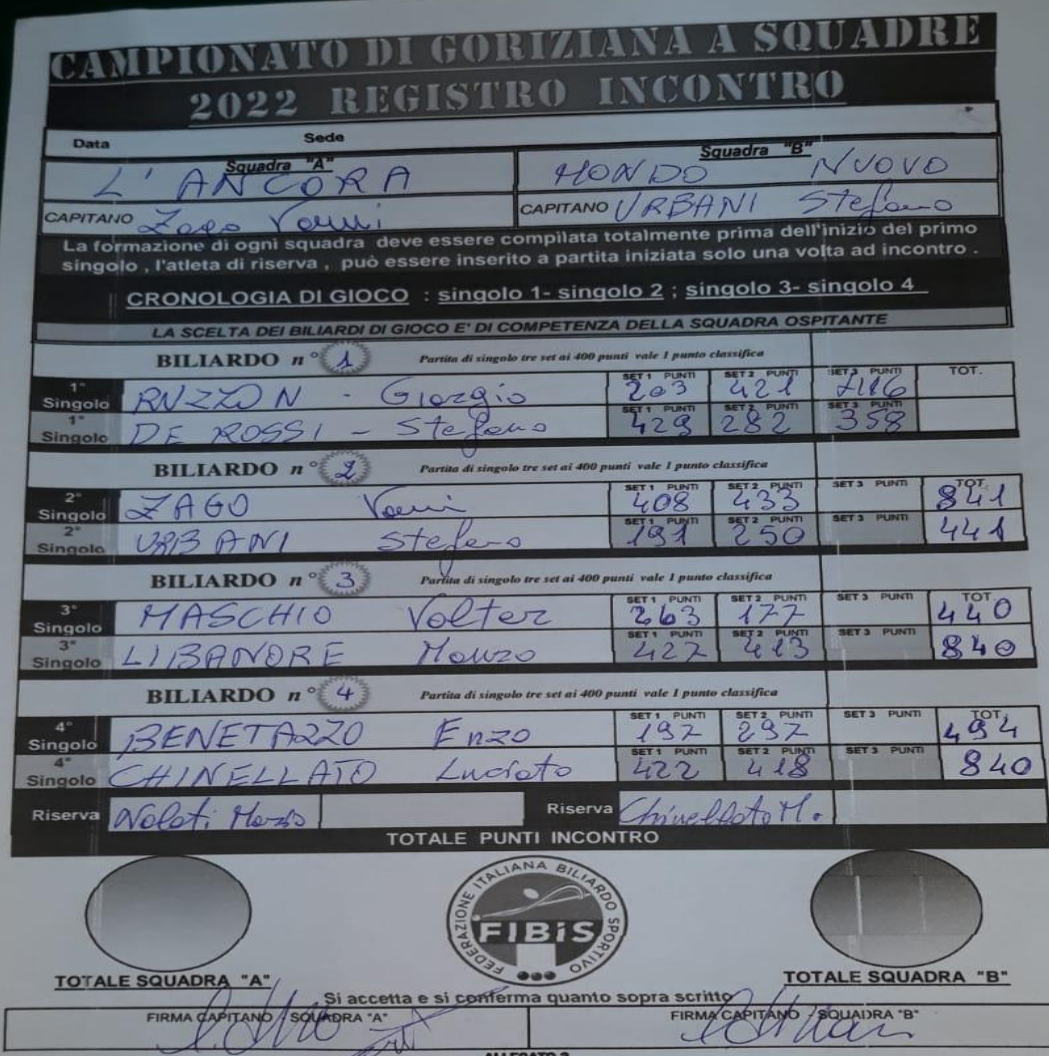 CAMPIONATO DI GORIZIANA A SQUADRE
2022 REGISTRO INCONTRO
Data Sede
Squadra "A" Squadra "B"
L'ANCORA MONDO NUOVO
CAPITANO Zago Vanni CAPITANO URBANI Stefano
La formazione di ogni squadra deve essere compilata totalmente prima dell'inizio del primo
singolo , l'atleta di riserva , può essere inserito a partita iniziata solo una volta ad incontro .
CRONOLOGIA DI GIOCO : singolo 1- singolo 2 ; singolo 3- singolo 4
LA SCELTA DEI BILIARDI DI GIOCO E' DI COMPETENZA DELLA SQUADRA OSPITANTE
BILIARDO n° 1 Partita di singolo tre set ai 400 punti vale 1 punto classifica
SET 1 PUNTI SET 2 PUNTI SET 3 PUNTI TOT.
1° Singolo Giorgio 203 421
SET 1 PUNTI SET 2 PUNTI SET 3 PUNTI
1° Singolo DE ROSSI - Stefano 429 282 358
BILIARDO n° 2 Partita di singolo tre set ai 400 punti vale 1 punto classifica
SET 1 PUNTI SET 2 PUNTI SET 3 PUNTI TOT.
2° Singolo ZAGO Vanni 408 433 841
SET 1 PUNTI SET 2 PUNTI SET 3 PUNTI
2° Singolo URBANI Stefano 191 250 441
BILIARDO n° 3 Partita di singolo tre set ai 400 punti vale 1 punto classifica
SET 1 PUNTI SET 2 PUNTI SET 3 PUNTI TOT
3° Singolo MASCHIO Volter 263 177 440
SET 1 PUNTI SET 2 PUNTI SET 3 PUNTI
3° Singolo LIBANORE 427 413 840
BILIARDO n° 4 Partita di singolo tre set ai 400 punti vale 1 punto classifica
SET 1 PUNTI SET 2 PUNTI SET 3 PUNTI TOT.
4° Singolo BENETAZZO Enzo 197 297 494
SET 1 PUNTI SET 2 PUNTI SET 3 PUNTI
4° Singolo CHINELLATO 422 418 840
Riserva Riserva Chinellato M.
TOTALE PUNTI INCONTRO
FEDERAZIONE ITALIANA BILIARDO SPORTIVO
FIBiS
TOTALE SQUADRA "A" TOTALE SQUADRA "B"
Si accetta e si conferma quanto sopra scritto
FIRMA CAPITANO SQUADRA "A" FIRMA CAPITANO SQUADRA "B"